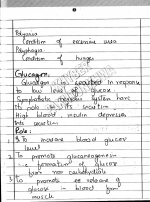 Polyuria
Condition of excessive urine
Polyphagia
Condition of hunger
Glucagon.
Glucagon is secreted in response
to low level of glucose
Sympathetic nervous system have
its role in its secretion.
High blood insulin depresses
its secretion.
Role:
1 To increase blood glucose
level
2 To promote gluconeogenesis
formation of glucose
from non carbohydrate
3 To promote release of
glucose in blood from
muscle